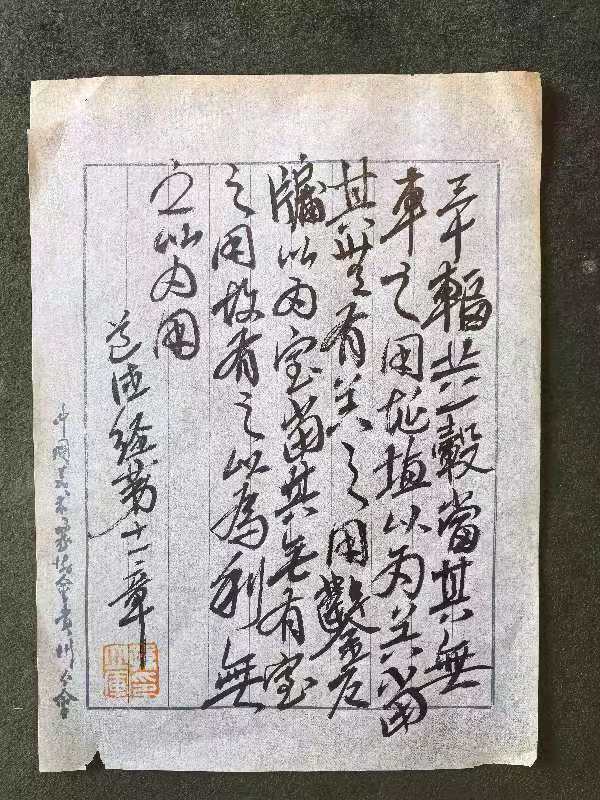 三十輻共一轂當其無
車之用埏埴以为器当
其無有器之用鑿户
牖以为室当其无有室
之用故有之以為利無
之以为用
道德經第十一章
中国美术家协会贵州分会